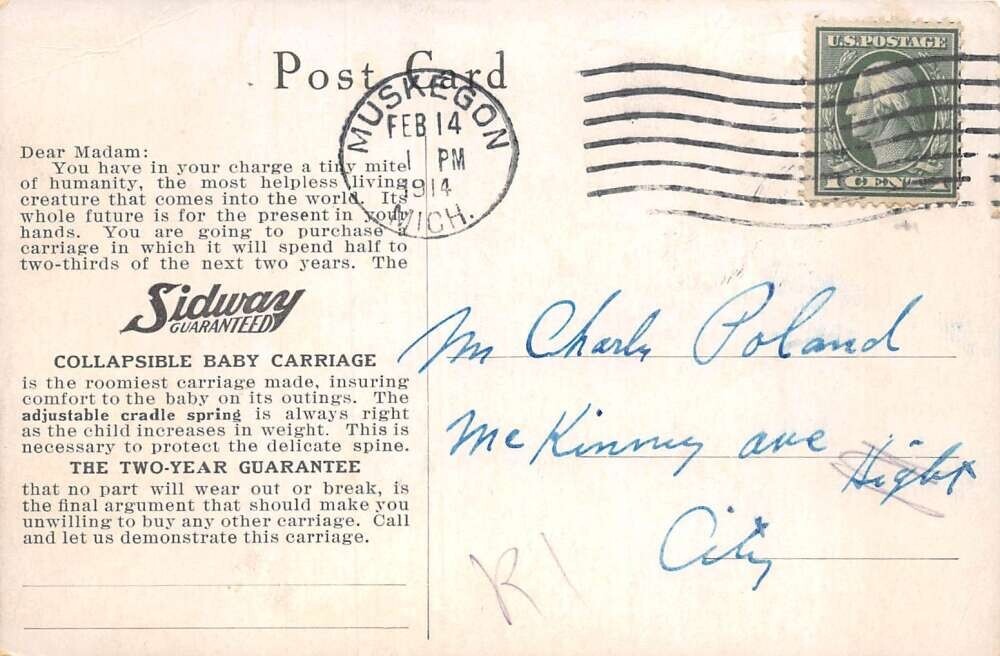 Post Card
U.S.POSTAGE
1 CENT 1
MUSKEGON
FEB 14
1 PM
1914
MICH.
Dear Madam:
You have in your charge a tiny mite
of humanity, the most helpless living
creature that comes into the world. Its
whole future is for the present in your
hands. You are going to purchase a
carriage in which it will spend half to
two-thirds of the next two years. The
Sidway
GUARANTEED
COLLAPSIBLE BABY CARRIAGE
is the roomiest carriage made, insuring
comfort to the baby on its outings. The
adjustable cradle spring is always right
as the child increases in weight. This is
necessary to protect the delicate spine.
THE TWO-YEAR GUARANTEE
that no part will wear out or break, is
the final argument that should make you
unwilling to buy any other carriage. Call
and let us demonstrate this carriage.
Charly Poland
McKinney ave
City
R1